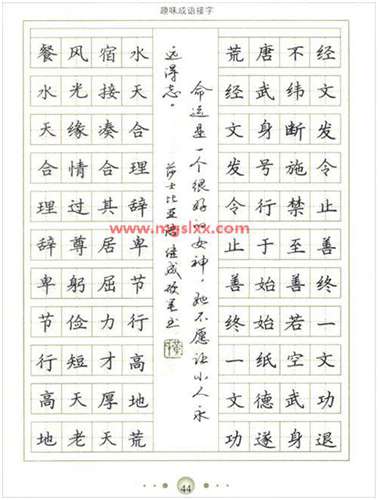 趣味成语接字
餐风宿水
水光接天
天缘凑合
合情合理
理过其辞
辞尊居卑
卑躬屈节
节俭力行
行短才高
高天厚地
地老天荒
命运是一个很好的女神，她不愿让小人永
远得志。
莎士比亚语 佳成
荒唐不经
经武纬文
文身断发
发号施令
令行禁止
止于至善
善始善终
终始若一
一纸空文
文德武功
功遂身退
www.mgslxx.com
44